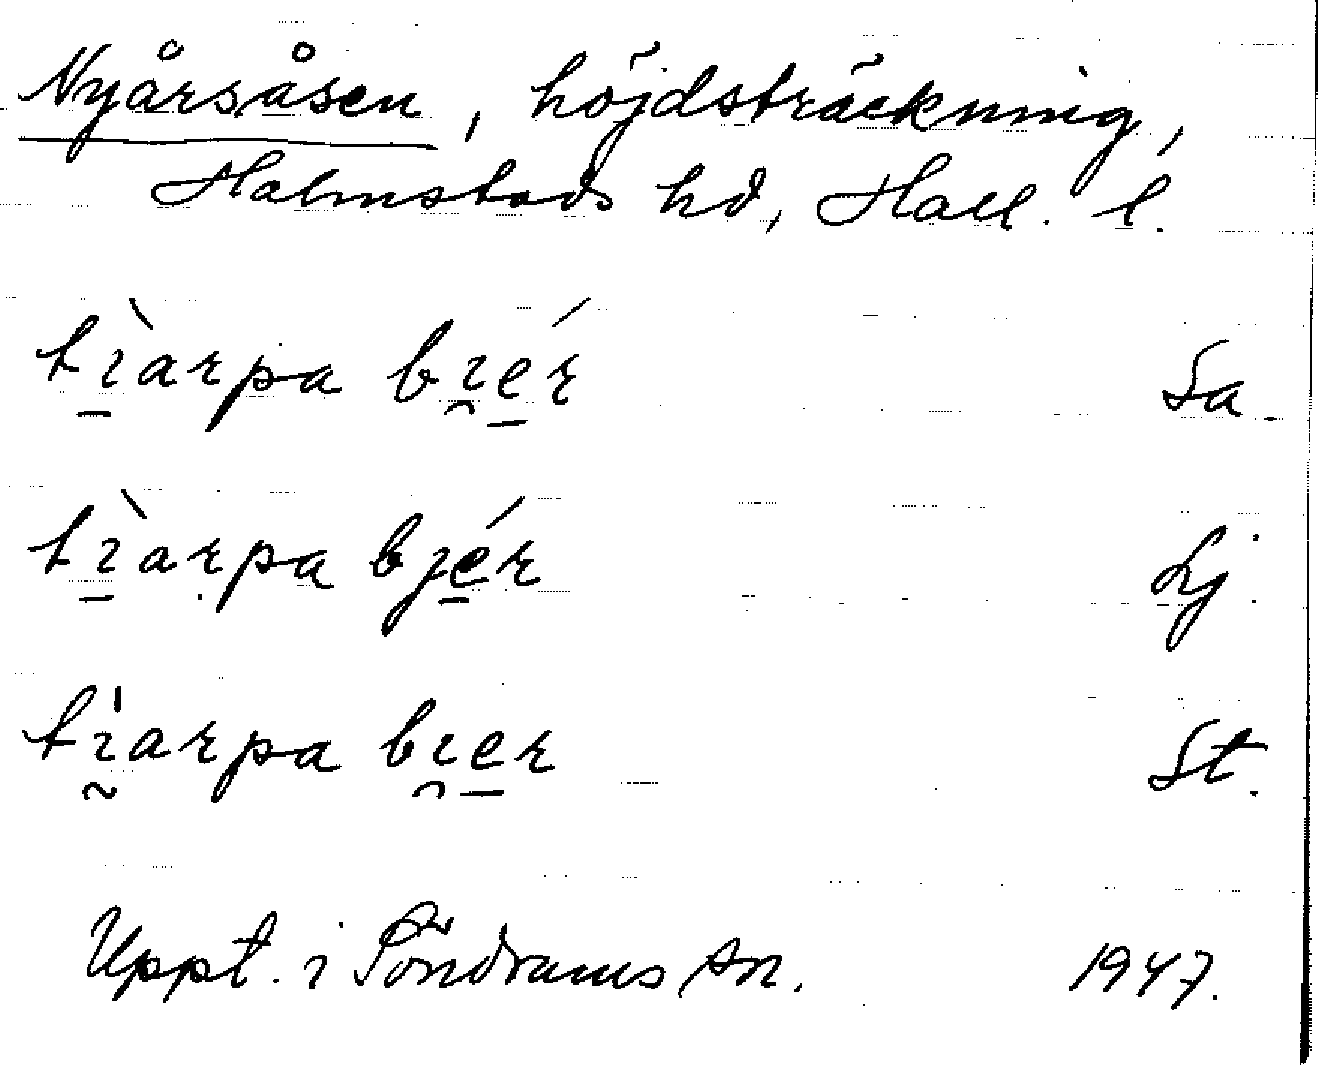 Nyårsåsen, höjdsträckning,
Halmstads hd, Hall. l.
tı̱̀arpa bı̯é̱r Sa.
tı̱̀arpa bjé̱r Lj.
tı̰̀arpa bı̯e̱r St.
Uppt. i Söndrums sn. 1947.